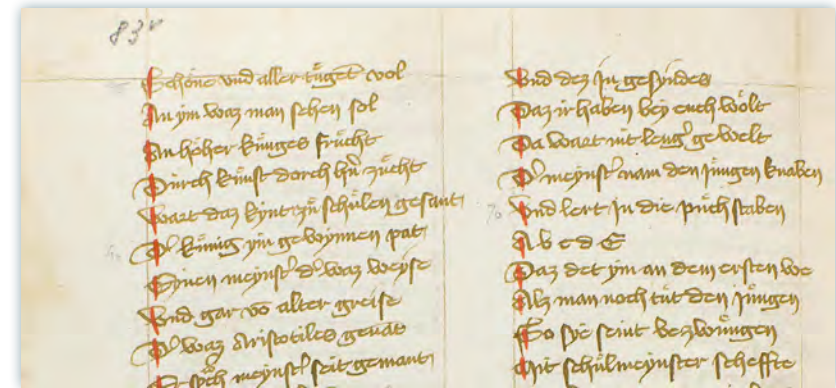 83r
Schone vnd aller tuget vol
An ym waz man sehen sol
An hoher kunges frucht
Durch kunst dorch hn̄ zucht
Wart daz kynt zu schulen gesant
Dʼ kunig ym gewynnen pat
Eynen meynstʼ dʼ waz weyse
Vnd gar vō alter greise
Dʼ waz Aristotiles genāt
meynstʼ seit gemant
Vnd dez in gesyndes
Daz ir haben bey euch wolt
Da wart nit lengʼ gewelt
Dʼ meynstʼ nam den jungen knaben
70 Vnd lert in die puch staben
A b c d E
Daz det ym an dem ersten we
Alz man noch tut den jungen
So sye seint bezwungen
Mit schulmeynster scheffte